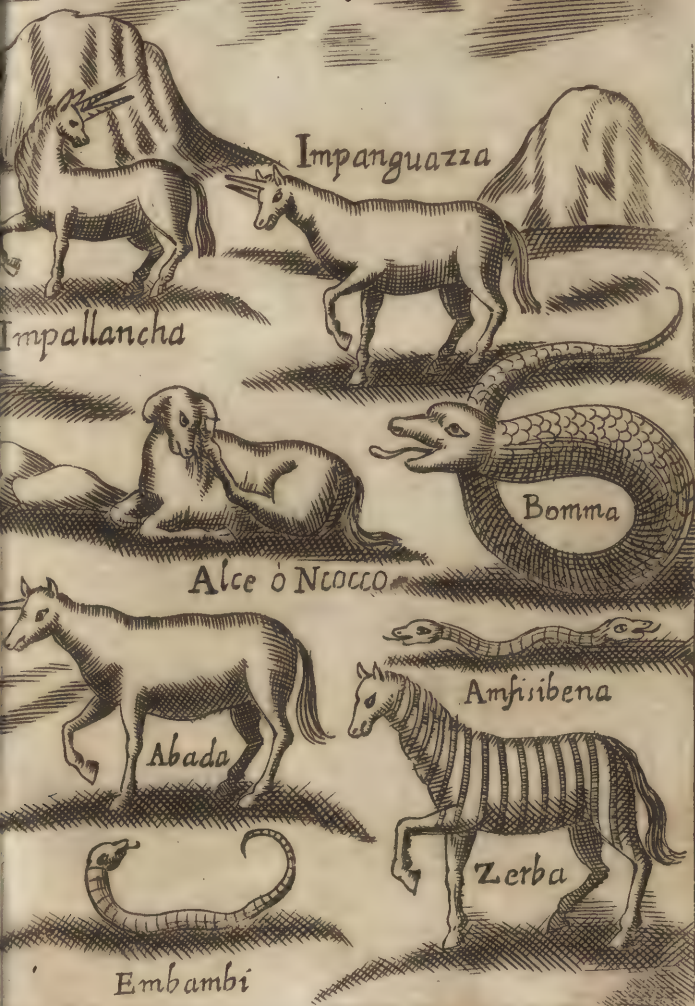 Impanguazza
Impallancha
Bomma
Alce ò Ncocco
Amfisibena
Abada
Zerba
Embambi